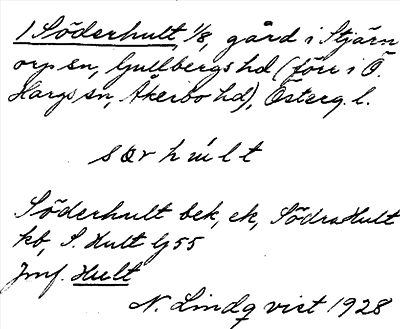 1 Söderhult, 1/8, gård i Stjärn
orp sn, Gullbergs hd (förr i Ö.
Hargs sn, Åkerbo hd), Österg. l.
sørhúlt
Söderhult bek, ek, Södra Hult
kb, S. Hult lj 55
Jmf. Hult
N. Lindqvist 1928